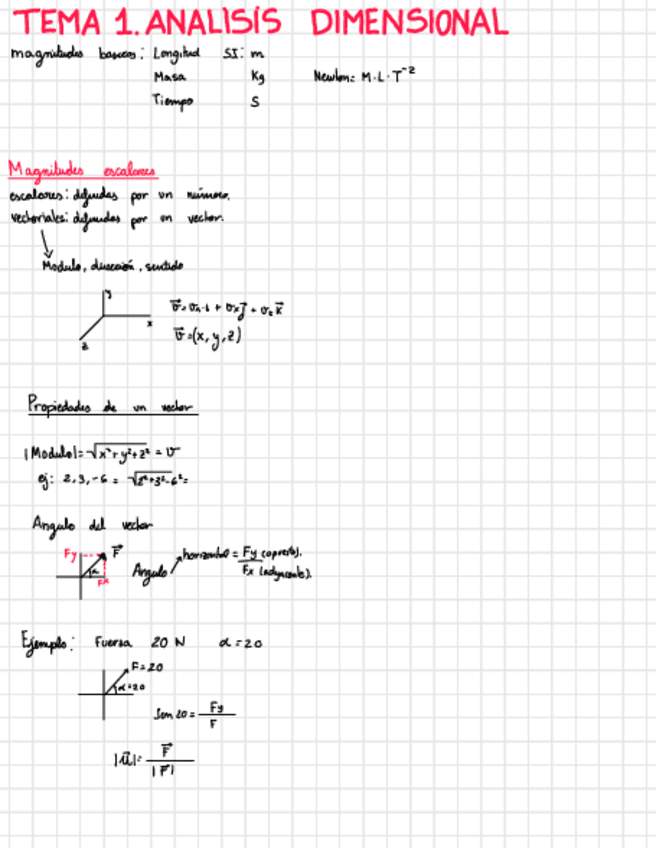 TEMA 1. ANALISIS DIMENSIONAL
magnitudes basicas: Longitud SI: m
Masa Kg Newton: M·L·T⁻²
Tiempo S
Magnitudes escalares
escalares: definidas por un número.
vectoriales: definidas por un vector.
Modulo, dirección, sentido
y
x
z
v⃗ = vₓ·i + vₓj⃗ + v₂ k⃗
v⃗ = (x, y, z)
Propiedades de un vector
|Modulo| = √x²+y²+z² = v
ej: 2, 3, -6 = √2²+3²-6² =
Angulo del vector
Fy F⃗
α
Fx
Angulo horizontal = Fy (opuesto).
Fx (adyacente).
Ejemplo: Fuersa 20 N α = 20
F = 20
α = 20
Sen 20 = Fy
F
|u⃗| = F⃗
|F⃗|